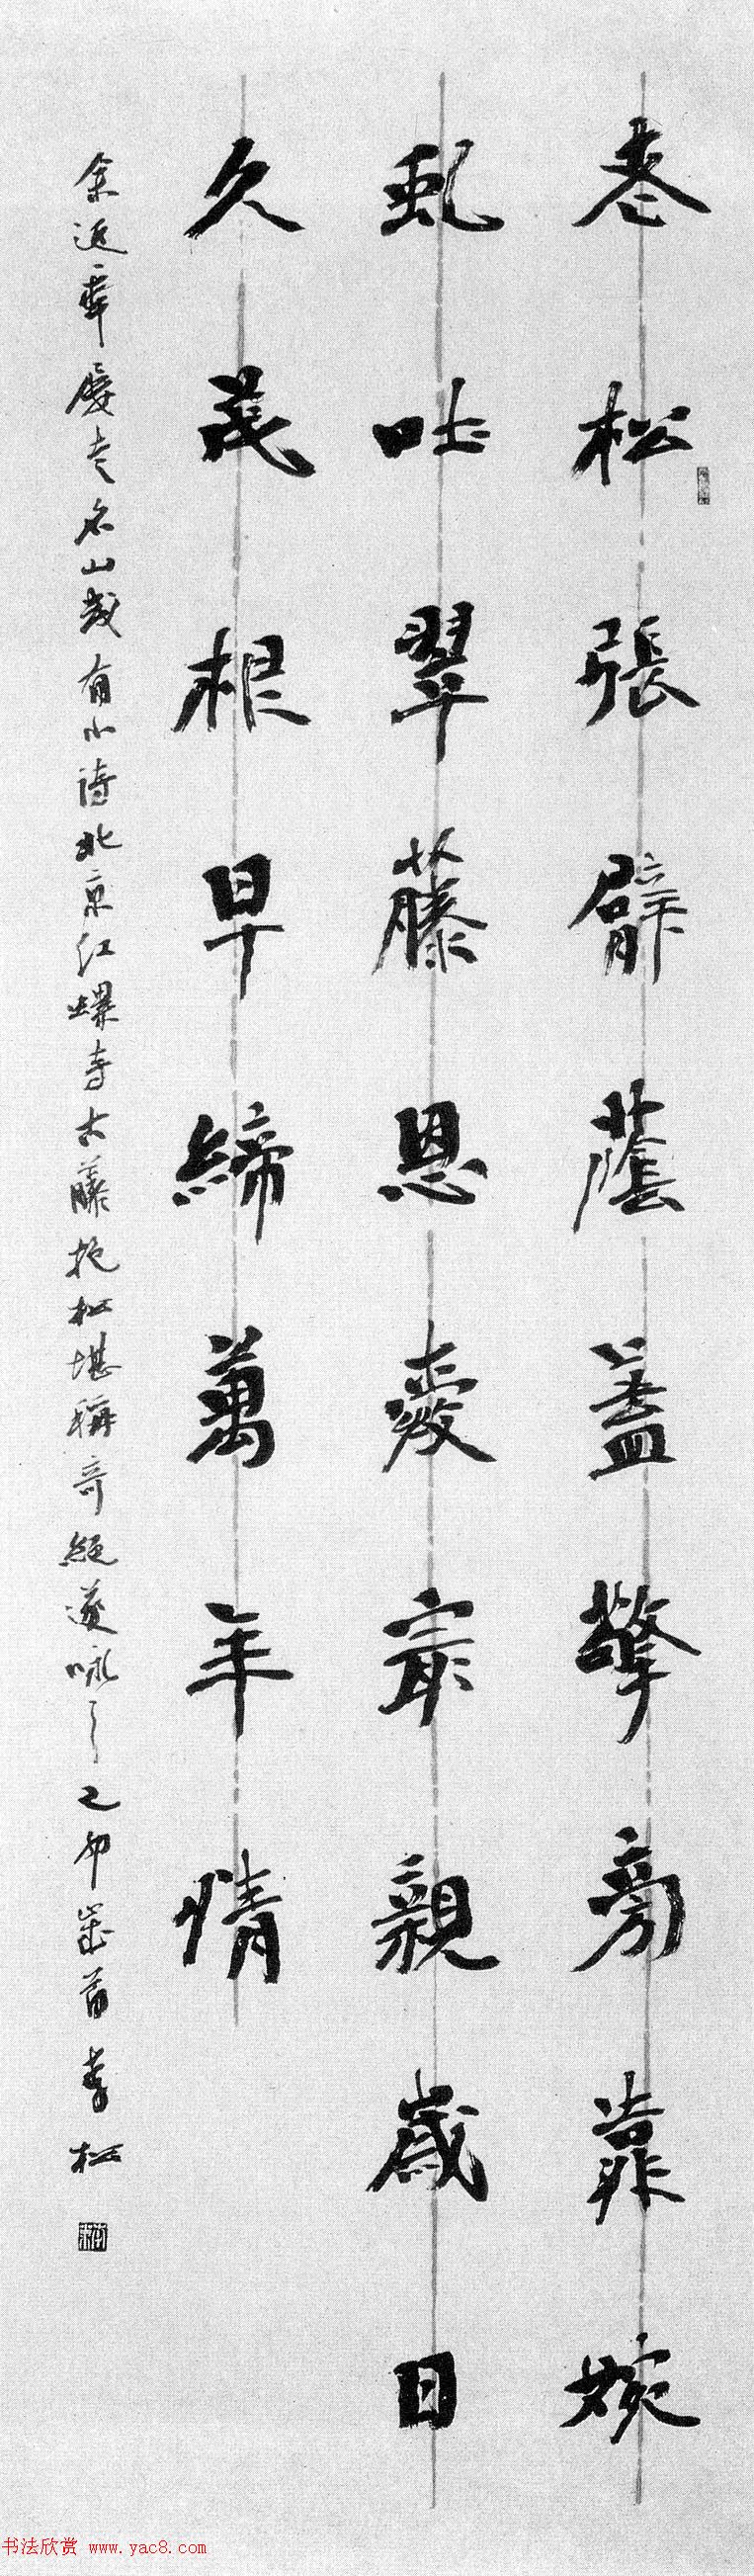 老松張臂蔭蓋擎旁靠婉
虬吐翠藤恩愛最親歲日
久茂根早締萬年情
余近年屢走名山或有小詩北京红螺寺古藤抱松堪稱奇絕遂咏之乙卯歲首李松
书法欣赏 www.yac8.com